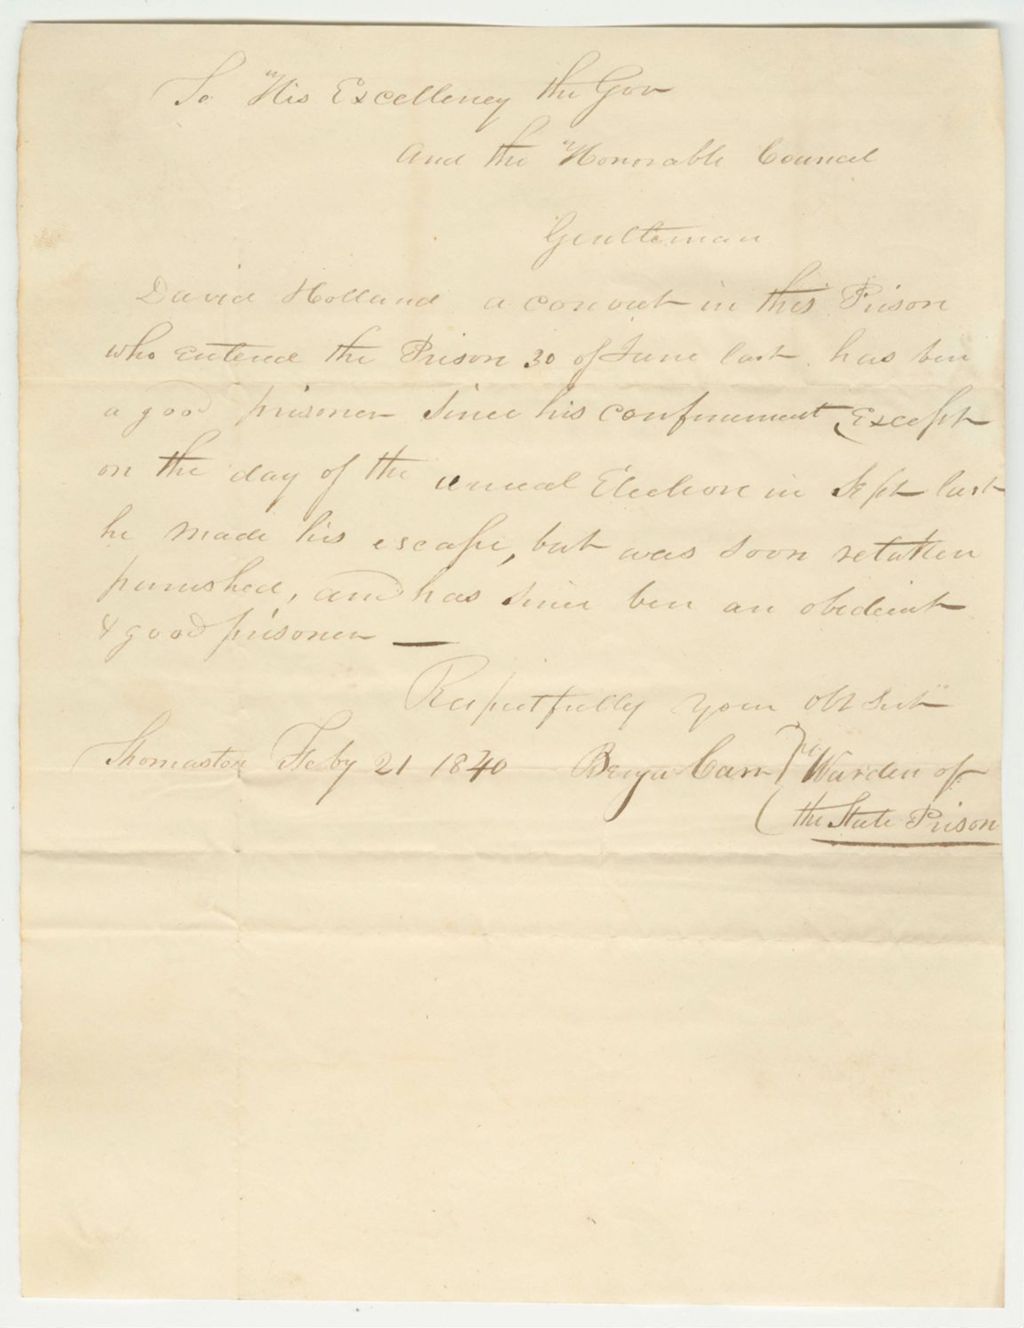 To His Excellency the Gov
and the Honorable Council
Gentleman
David Holland a convict in this Prison
who entered the Prison 30 of June last has ben
a good prisoner since his confinement, Except
on the day of the anueal Election in Sept last
he made his escape, but was soon retaken
punished, and has since ben an obedient
& good prisoner —
Respectfully your obt Sert
Thomaston Feby 21 1840 Benja Carr Warden of
the State Prison